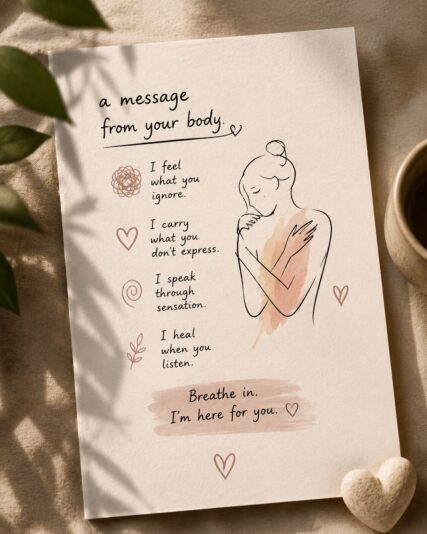 a message
from your body.
I feel
what you
ignore.
I carry
what you
don't express.
I speak
through
sensation.
I heal
when you
listen.
Breathe in.
I'm here for you.